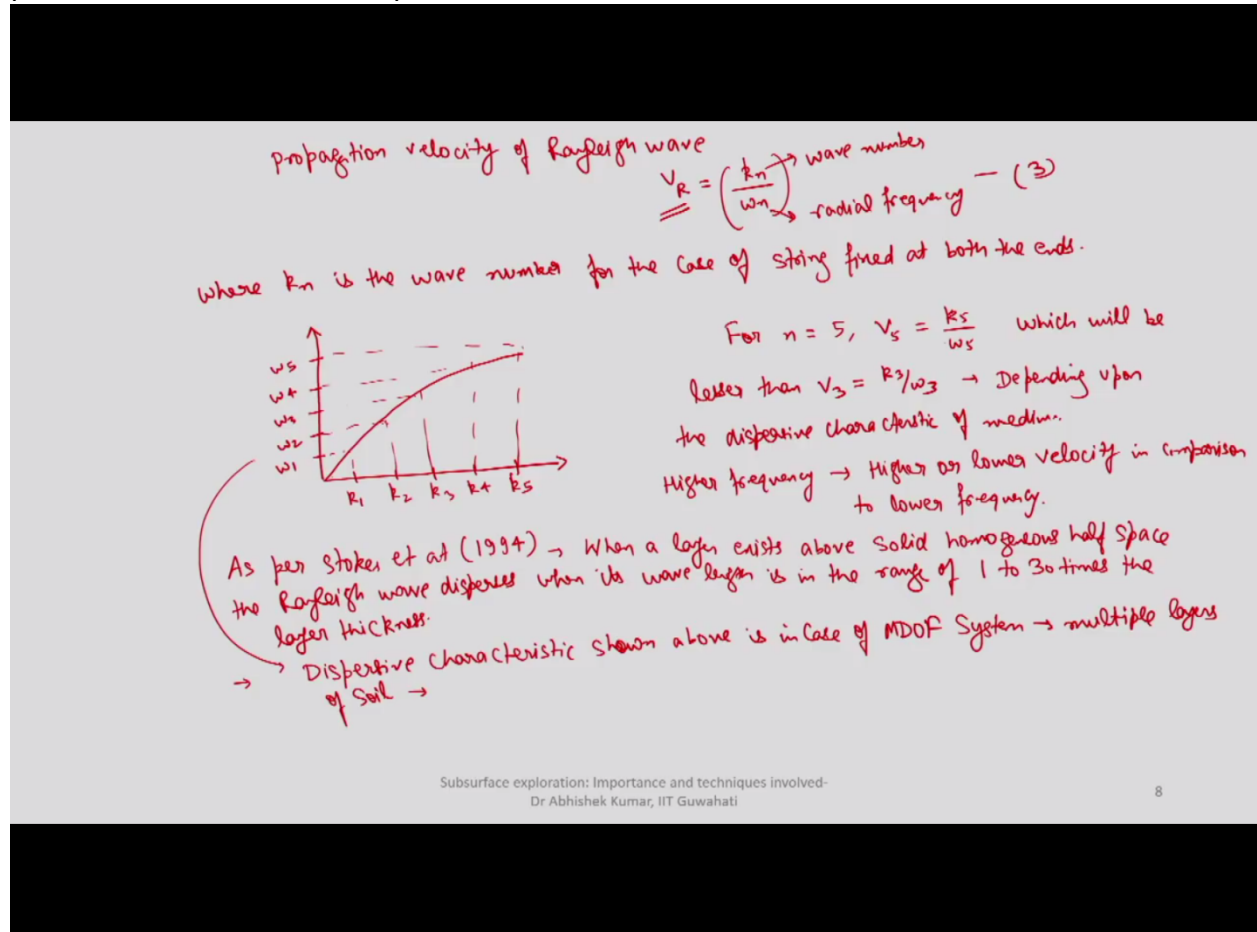 propagation velocity of Rayleigh wave
V_R = (kn/wn) → wave number
→ radial frequency — (3)
where kn is the wave number for the case of string fixed at both the ends.
w5
w4
w3
w2
w1
k1 k2 k3 k4 k5
For n = 5, V5 = k5/w5 which will be
lesser than V3 = k3/w3 → Depending upon
the dispersive characteristic of medium.
Higher frequency → Higher or lower velocity in comparison
to lower frequency.
As per Stoker et at (1994) → When a layer exists above Solid homogeneous half space
the Rayleigh wave disperses when its wave length is in the range of 1 to 30 times the
layer thickness.
→ Dispersive characteristic shown above is in Case of MDOF System → multiple layers
of Soil →
Subsurface exploration: Importance and techniques involved-
Dr Abhishek Kumar, IIT Guwahati
8